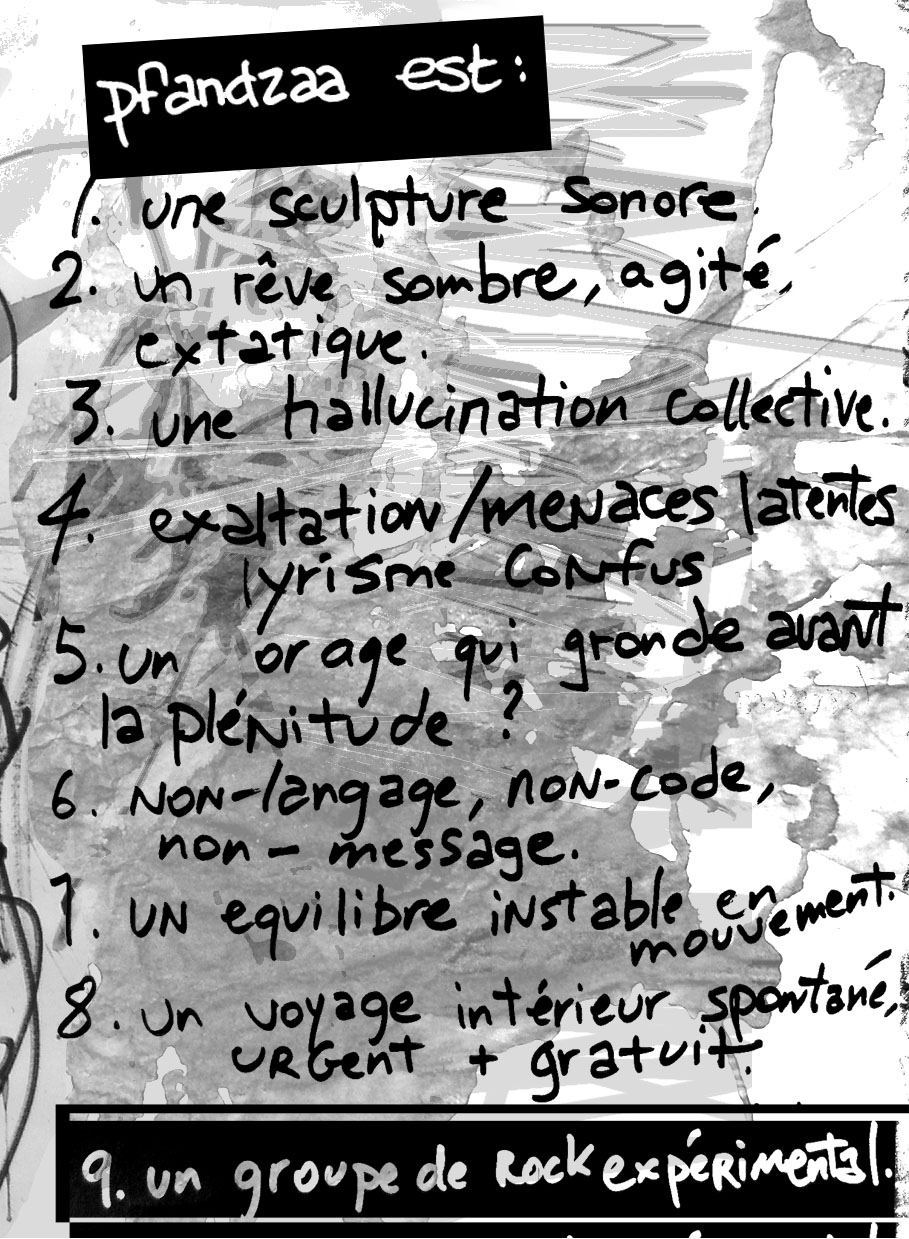 pfandzaa est:
1. une sculpture sonore.
2. un rêve sombre, agité,
extatique.
3. une hallucination collective.
4. exaltation/menaces latentes
lyrisme confus
5. un orage qui gronde avant
la plénitude ?
6. non-langage, non-code,
non-message.
7. un equilibre instable en
mouvement.
8. un voyage intérieur spontané,
urgent + gratuit.
9. un groupe de Rock expérimental.